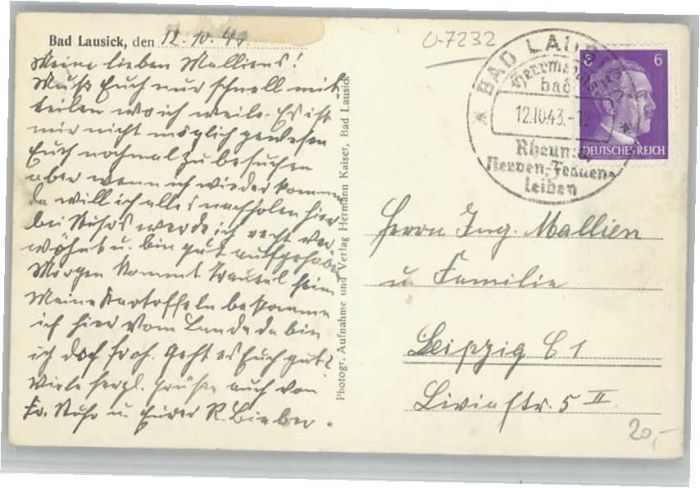 Bad Lausick, den 12.10.43
Meine lieben Malliens!
Muß Euch nur schnell mit-
teilen wo ich weile. Es ist
mir nicht möglich gewesen
Euch nochmal zu besuchen
aber wenn ich wieder komme
da will ich alles nachholen hier
bei Ruhrs werde ich recht ver-
wöhnt u. bin gut aufgehoben
Morgen kommt Traudel heim
Meine Kartoffeln bekomme
ich hier vom Lande da bin
ich doch froh. Geht es Euch gut?
Viele herzl. Grüße auch von
Fr. Ruhr u. Eurer R. Bieber.
Photogr. Aufnahme und Verlag Hermann Kaiser, Bad Lausick
U-7232
BAD LAUSICK
Herrmanns-
bad
12.10.43.-12
Rheuma
Nerven-Frauen-
leiden
6
DEUTSCHES REICH
Herrn Ing. Mallien
u. Familie
Leipzig C 1
Liviastr. 5 II
20,-